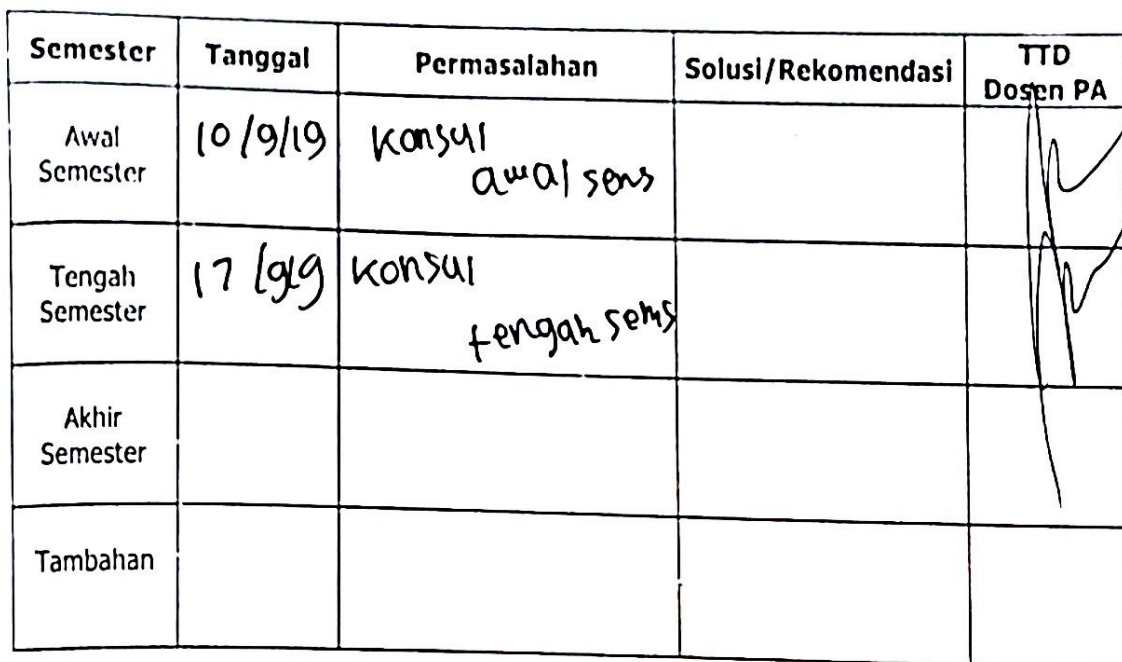 Semester Tanggal Permasalahan Solusi/Rekomendasi TTD
Dosen PA
Awal
Semester
10/9/19
Konsul
awal sems
Tengah
Semester
17/9/19
Konsul
tengah sems
Akhir
Semester
Tambahan